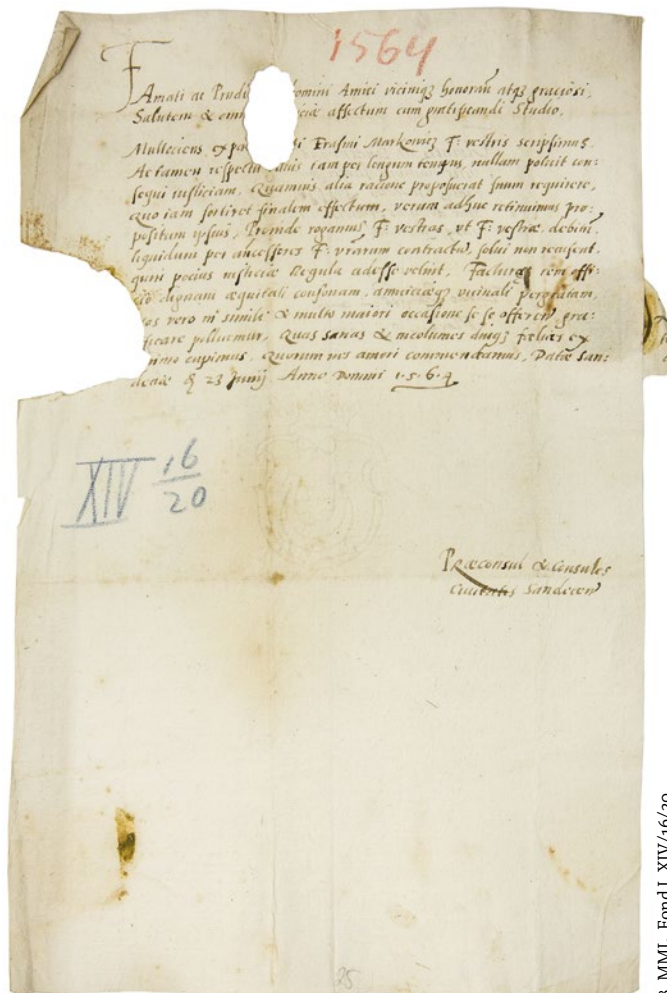 1564
Famati ac Prud domini Amici vicinique honoran atque graciosi,
Salutem & omn affectum cum gratificandi Studio.
Multociens ex par Erasmi Markowicz F: vestris scripsimus,
Actamen respectu iam per longum tempus, nullam potuit con:
sequi iusticiam, Quamuis alia racione proposuerat suum requirere,
quo iam sortiret finalem effectum, verum adhuc retinuimus pro:
positum ipsius, Proinde rogamus F: vestras, vt F: vestræ, debitū
liquidum per ancessores F: vrarum contractū, solui non recusent,
quin pocius iusticiæ Regula adesse velint, Facturæ rem offi:
dignam æquitati consonam, amiciciæque vicinali pergratam,
nos vero in simili & multo maiori occasione se se offeren gra:
ficare pollicemur, Quas sanas & incolumes diuque fælices ex
nimo cupimus, Quorum nos amori commendamus, Datæ San:
deciæ 23 Junij Anno Domini 1.5.6.4
XIV 16/20
Præconsul & Consules
Ciuitatis Sandecen
25
MML, Fond I, XIV/16/20